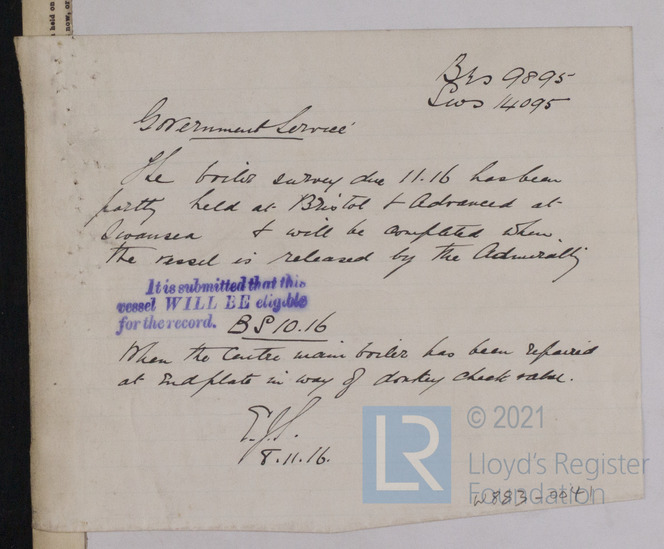 held on
now, or
BRS 9895
Sws 14095
Government Service
The boiler survey due 11.16 has been
partly held at Bristol & Advanced at
Swansea & will be completed when
the vessel is released by the Admiralty
It is submitted that this
vessel WILL BE eligible
for the record. BS 10.16
When the Centre main boiler has been repaired
at end plate in way of donkey check valve.
8.11.16.
LR
© 2021
Lloyd's Register
Foundation
W883-0041